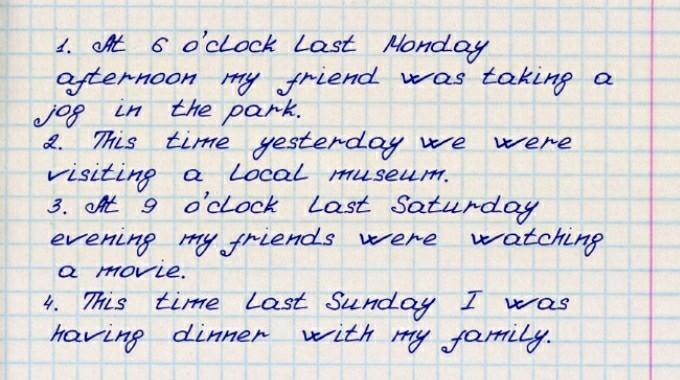 1. At 6 o'clock last Monday
afternoon my friend was taking a
jog in the park.
2. This time yesterday we were
visiting a local museum.
3. At 9 o'clock last Saturday
evening my friends were watching
a movie.
4. This time last Sunday I was
having dinner with my family.